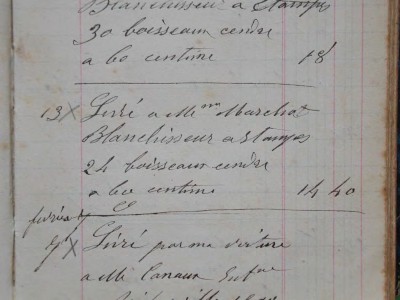 Blanchisseur a Etampes
30 boisseaux cendre
a 60 centime 18
13 X Livré a Mme Marchat
Blanchisseur a Etampes
24 boisseaux cendre
a 60 centime 14 40
février
7 X Livré par ma voiture
a Mr